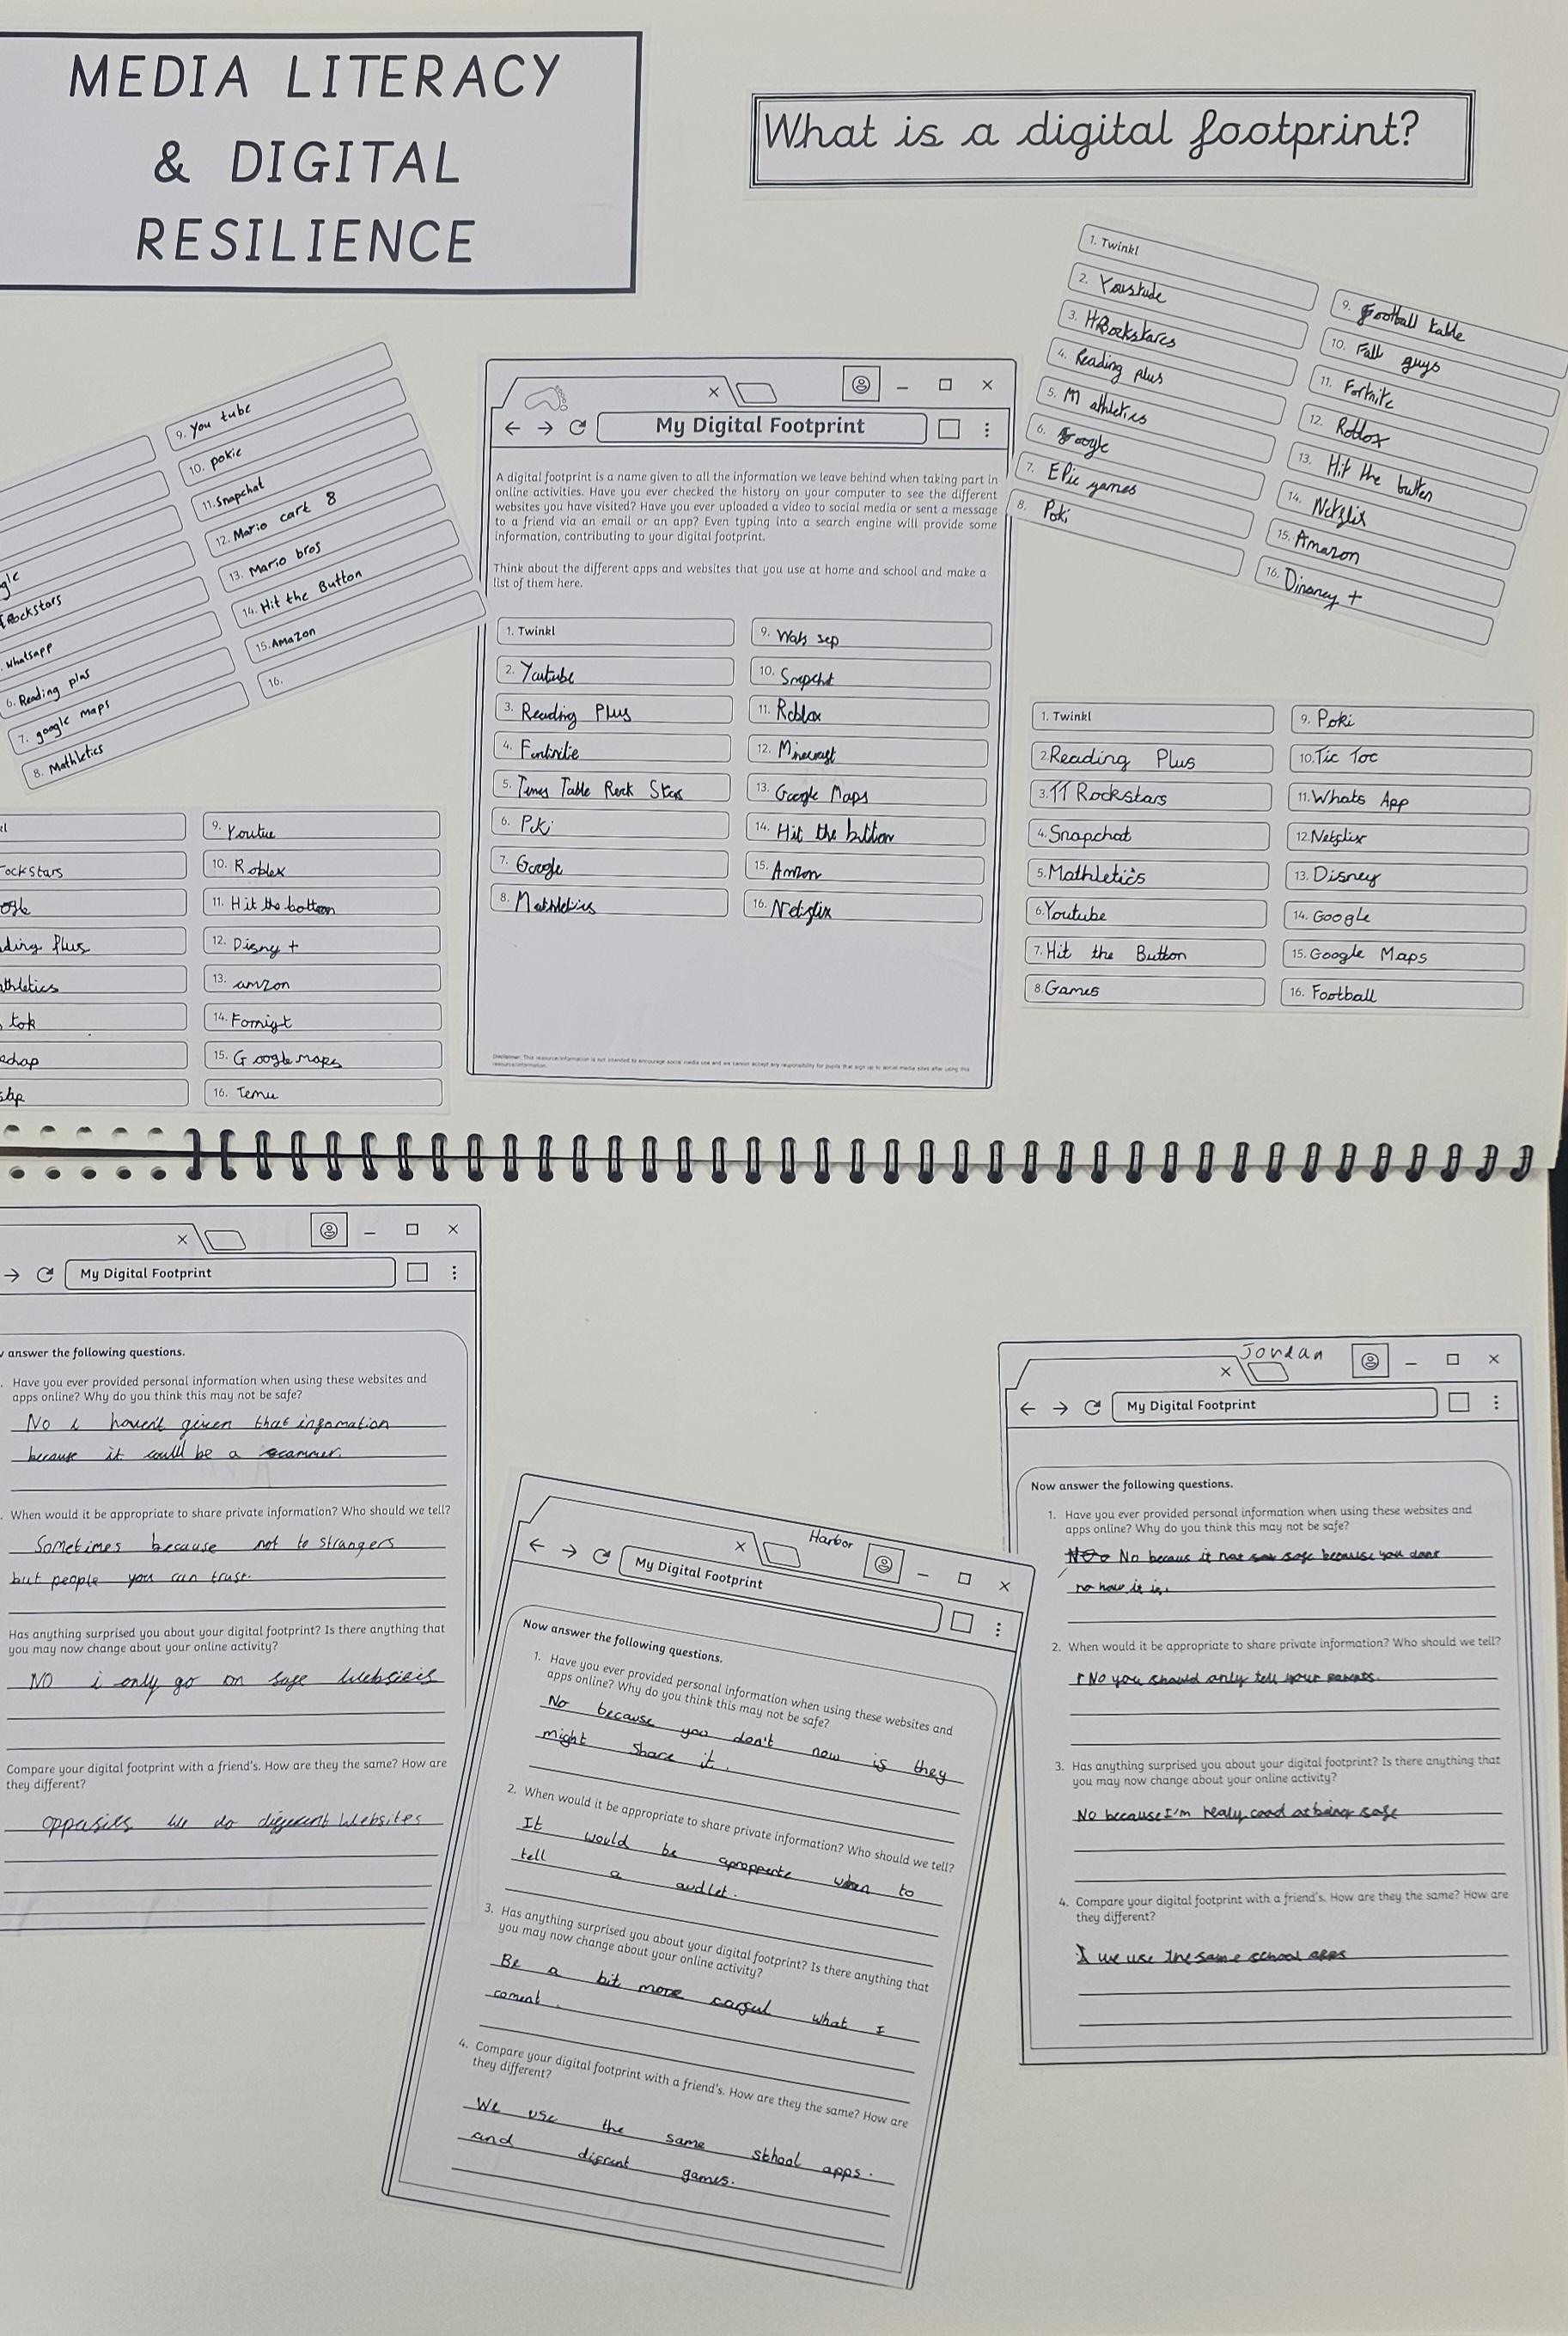 MEDIA LITERACY
& DIGITAL
RESILIENCE
What is a digital footprint?
9. You tube
10. pokie
11. Snapchat
12. Mario cart 8
13. Mario bros
14. Hit the Button
15. Amazon
16.
gle
Rockstars
Whatsapp
6. Reading plus
7. google maps
8. Mathletics
My Digital Footprint
A digital footprint is a name given to all the information we leave behind when taking part in
online activities. Have you ever checked the history on your computer to see the different
websites you have visited? Have you ever uploaded a video to social media or sent a message
to a friend via an email or an app? Even typing into a search engine will provide some
information, contributing to your digital footprint.
Think about the different apps and websites that you use at home and school and make a
list of them here.
1. Twinkl
2. Youtube
3. Reading Plus
4.
5. Times Table Rock Stars
6. Poki
7. Google
8. Mathletics
9. Wats sep
10. Snapcht
11. Roblox
12. Minecraft
13. Google Maps
14. Hit the button
15. Amzon
16. Netflix
Disclaimer: This resource/information is not intended to encourage social media use and we cannot accept any responsibility for pupils that sign up to social media sites after using this
resource/information.
1. Twinkl
2.
3.
4. Reading plus
5. M athletics
6. Google
7. Epic games
8. Poki
9. Football table
10. Fall guys
11. Fortnite
12. Roblox
13. Hit the button
14. Netflix
15. Amazon
16. Dinsney +
1. Twinkl
2. Reading Plus
3. TT Rockstars
4. Snapchat
5. Mathletics
6. Youtube
7. Hit the Button
8. Games
9. Poki
10. Tic Toc
11. Whats App
12. Netflix
13. Disney
14. Google
15. Google Maps
16. Football
kl
rockstars
ogle
ding Plus
athletics
tok
9. Youtue
10. Roblex
11. Hit the botton
12. Disny +
13. amzon
14. Fornigt
15. Google maps
16. Temu
My Digital Footprint
answer the following questions.
Have you ever provided personal information when using these websites and
apps online? Why do you think this may not be safe?
No i haven't given that infomation
because it could be a scammer.
When would it be appropriate to share private information? Who should we tell?
Sometimes because not to strangers
but people you can trust.
Has anything surprised you about your digital footprint? Is there anything that
you may now change about your online activity?
NO i only go on safe Websieis
Compare your digital footprint with a friend's. How are they the same? How are
they different?
oppasies We do different Websites
Harbor
My Digital Footprint
Now answer the following questions.
1. Have you ever provided personal information when using these websites and
apps online? Why do you think this may not be safe?
No because you don't now is they
might share it.
2. When would it be appropriate to share private information? Who should we tell?
It would be aproppente when to
tell a audlet.
3. Has anything surprised you about your digital footprint? Is there anything that
you may now change about your online activity?
Be a bit more carful what I
coment.
4. Compare your digital footprint with a friend's. How are they the same? How are
they different?
We use the same sthool apps.
and difrent games.
Jordan
My Digital Footprint
Now answer the following questions.
1. Have you ever provided personal information when using these websites and
apps online? Why do you think this may not be safe?
No becaus it not safe because you dont
no how it is.
2. When would it be appropriate to share private information? Who should we tell?
No you should only tell your parents.
3. Has anything surprised you about your digital footprint? Is there anything that
you may now change about your online activity?
No because I'm realy good at being safe
4. Compare your digital footprint with a friend's. How are they the same? How are
they different?
we use the same school apps